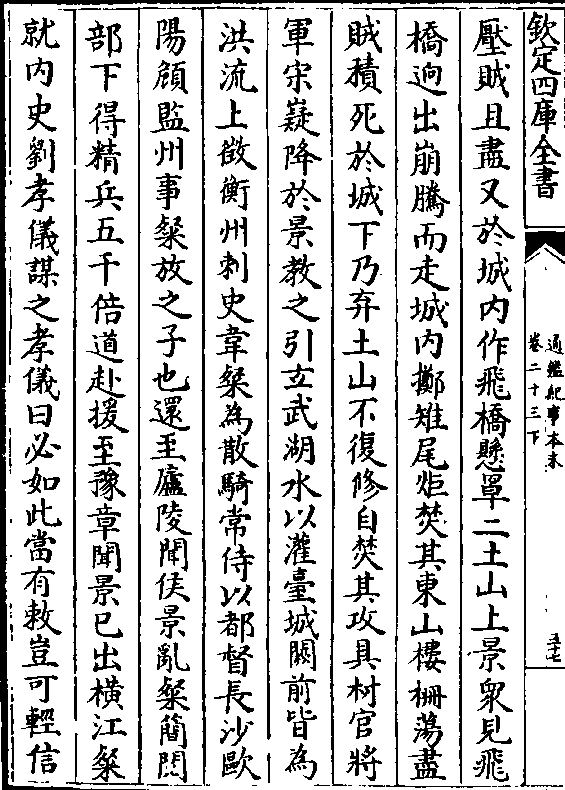 欽定四庫全書
通鑑紀事本末
卷二十三下
五十七
壓賊且盡又於城内作飛橋懸罩二土山上景衆見飛
橋逈出崩騰而走城内擲雉尾炬焚其東山樓栅蕩盡
賊積死於城下乃弃土山不復修自焚其攻具材官將
軍宋嶷降於景教之引𤣥武湖水以灌臺城闕前皆為
洪流上徵衡州刺史韋粲為散騎常侍以都督長沙歐
陽頠監州事粲放之子也還至廬陵聞侯景亂粲簡閲
部下得精兵五千倍道赴援至豫章聞景已出横江粲
就内史劉孝儀謀之孝儀曰必如此當有敕豈可輕信